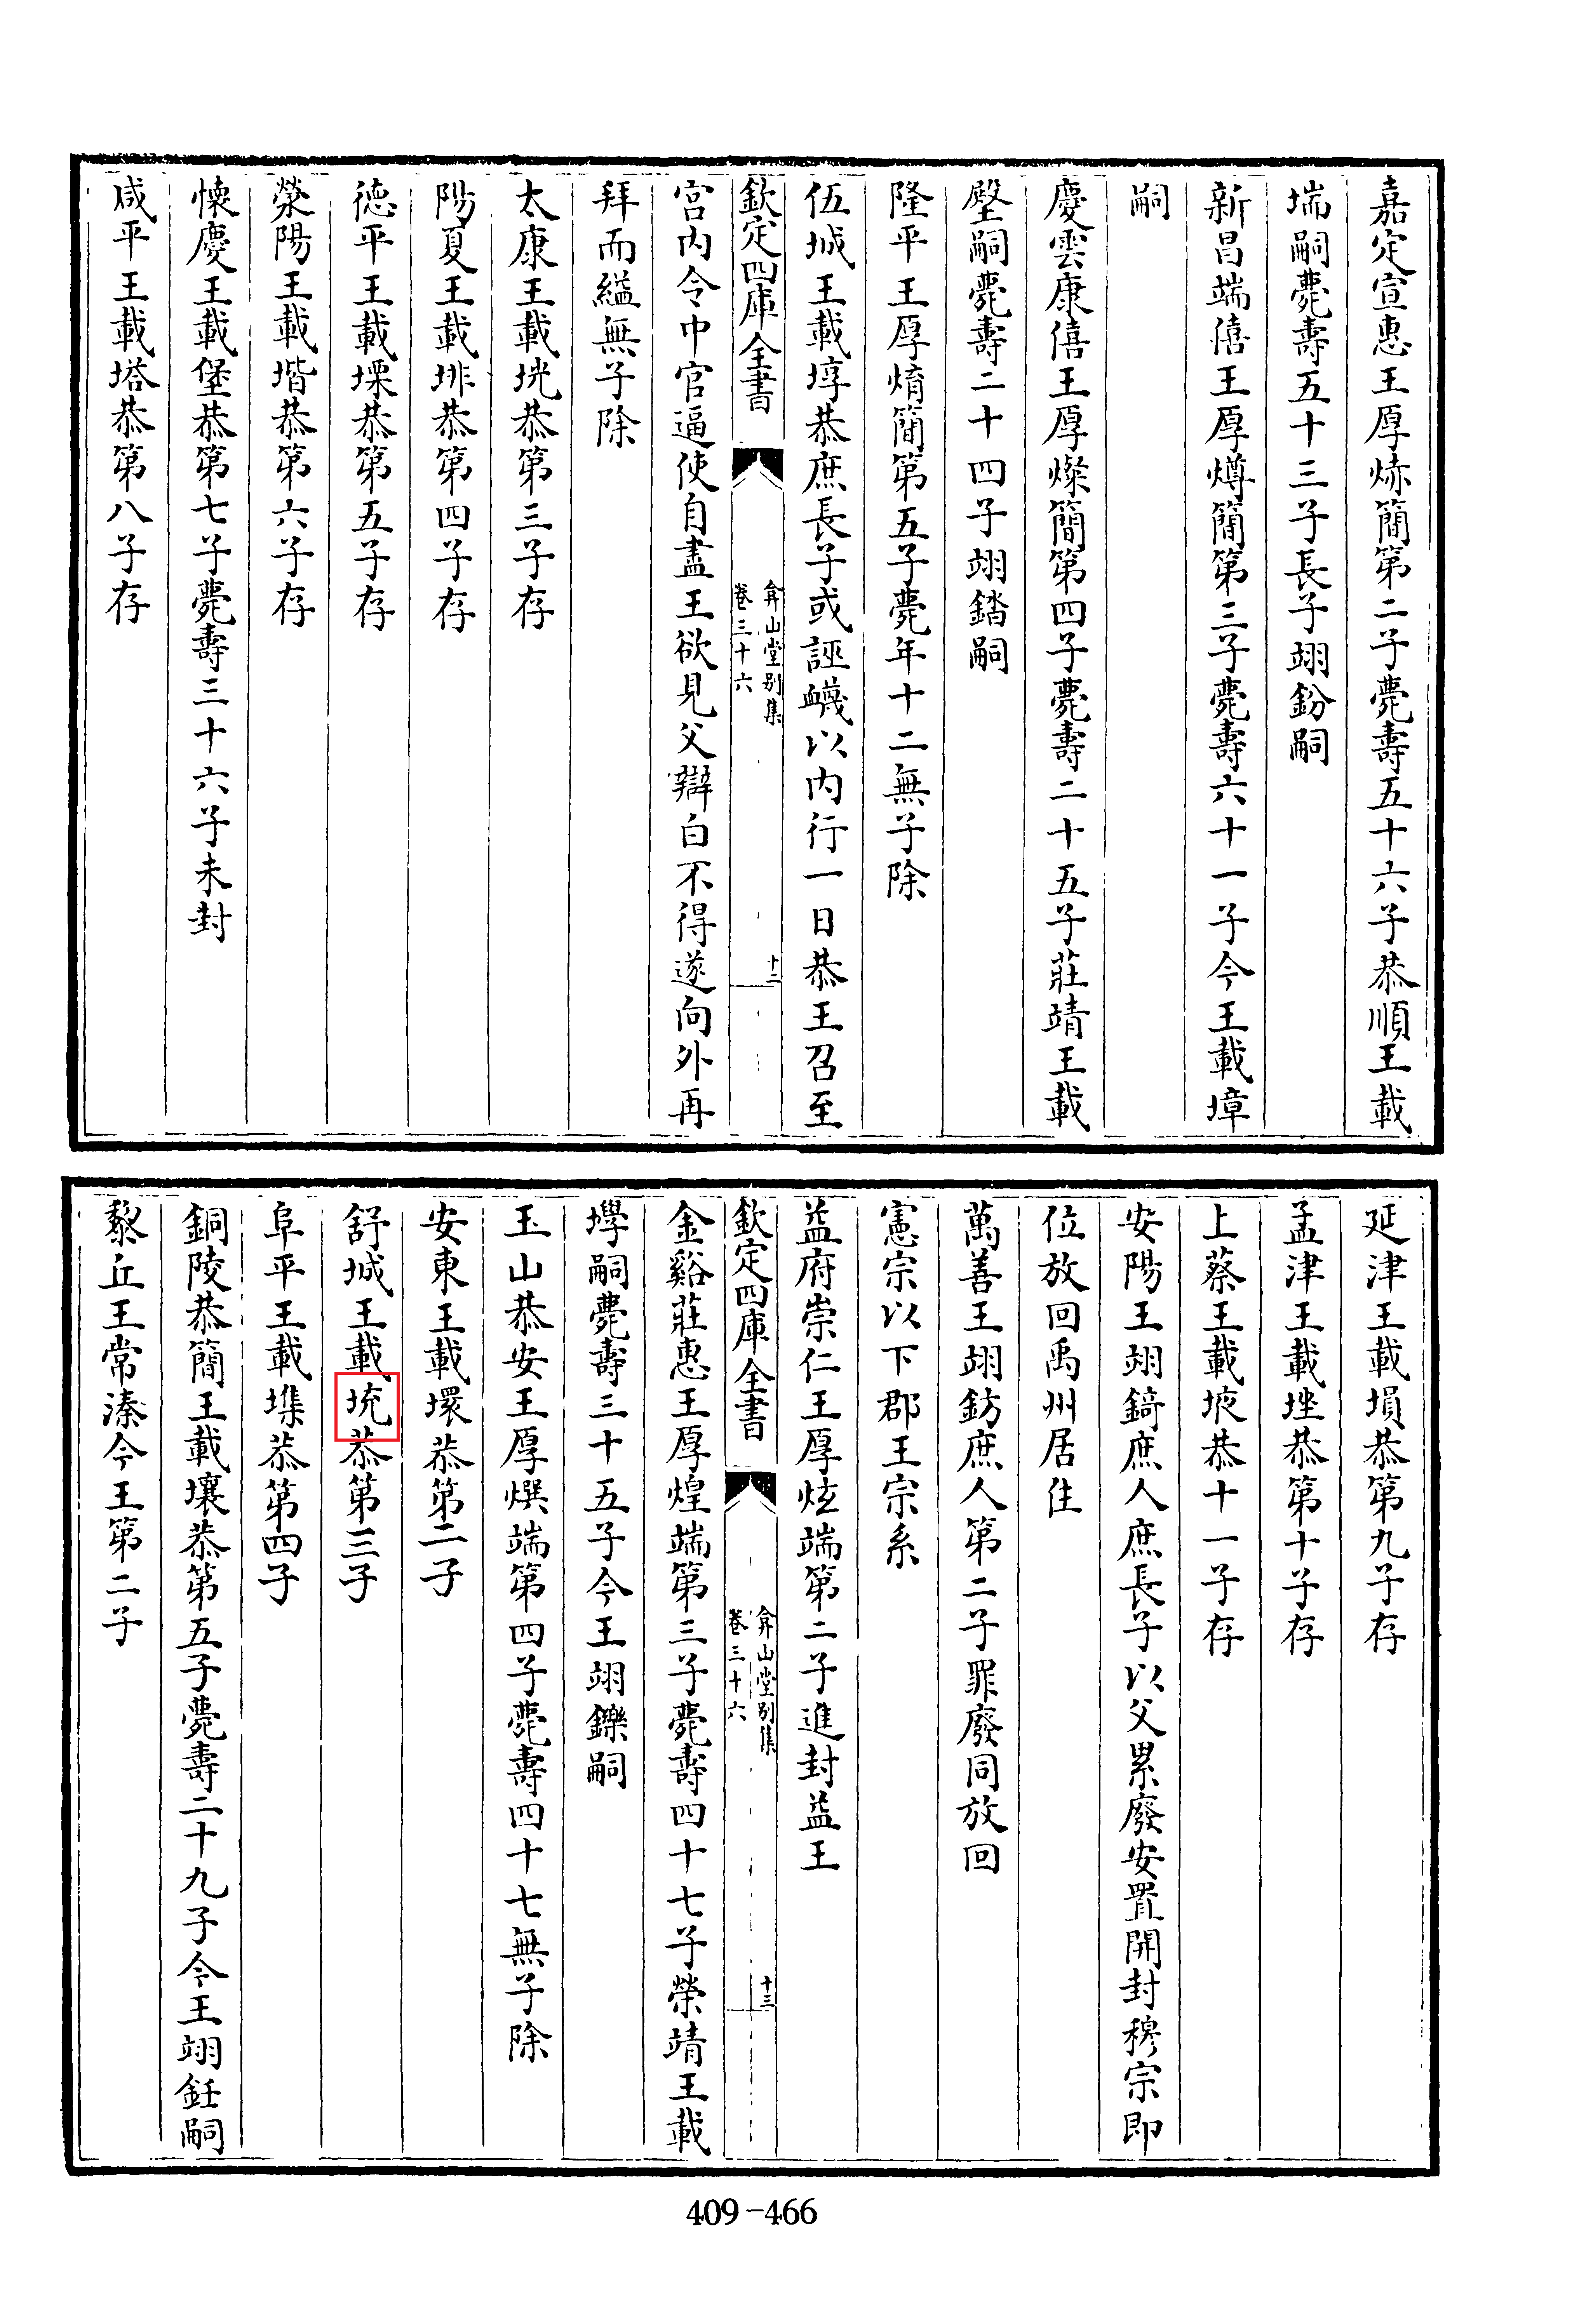 嘉定宣惠王厚熑簡第二子薨壽五十六子恭順王載
㙐嗣薨壽五十三子長子翊鈖嗣
新昌端僖王厚㷟簡第三子薨壽六十一子今王載墇
嗣
慶雲康僖王厚燦簡第四子薨壽二十五子莊靖王載
壂嗣薨壽二十四子翊錔嗣
隆平王厚焴簡第五子薨年十二無子除
伍城王載埻恭庶長子或誣衊以内行一日恭王召至
欽定四庫全書
弇山堂别集
卷三十六
十二
宫内令中官逼使自盡王欲見父辯白不得遂向外再
拜而縊無子除
太康王載垙恭第三子存
陽夏王載𡌦恭第四子存
德平王載塛恭第五子存
滎陽王載堦恭第六子存
懷慶王載堡恭第七子薨壽三十六子未封
咸平王載塔恭第八子存
延津王載塤恭第九子存
孟津王載堫恭第十子存
上蔡王載埉恭十一子存
安陽王翊錡庶人庶長子以父累廢安置開封穆宗即
位放回禹州居住
萬善王翊鈁庶人第二子罪廢同放回
憲宗以下郡王宗系
益府崇仁王厚炫端第二子進封益王
欽定四庫全書
弇山堂别集
卷三十六
十三
金谿莊惠王厚煌端第三子薨壽四十七子榮靖王載
㙾嗣薨壽三十五子今王翊鑠嗣
玉山恭安王厚熼端第四子薨壽四十七無子除
安東王載壞恭第二子
舒城王載㙒恭第三子
阜平王載㙫恭第四子
銅陵恭簡王載壤恭第五子薨壽二十九子今王翊鈓嗣
黎丘王常溱今王第二子
409-466